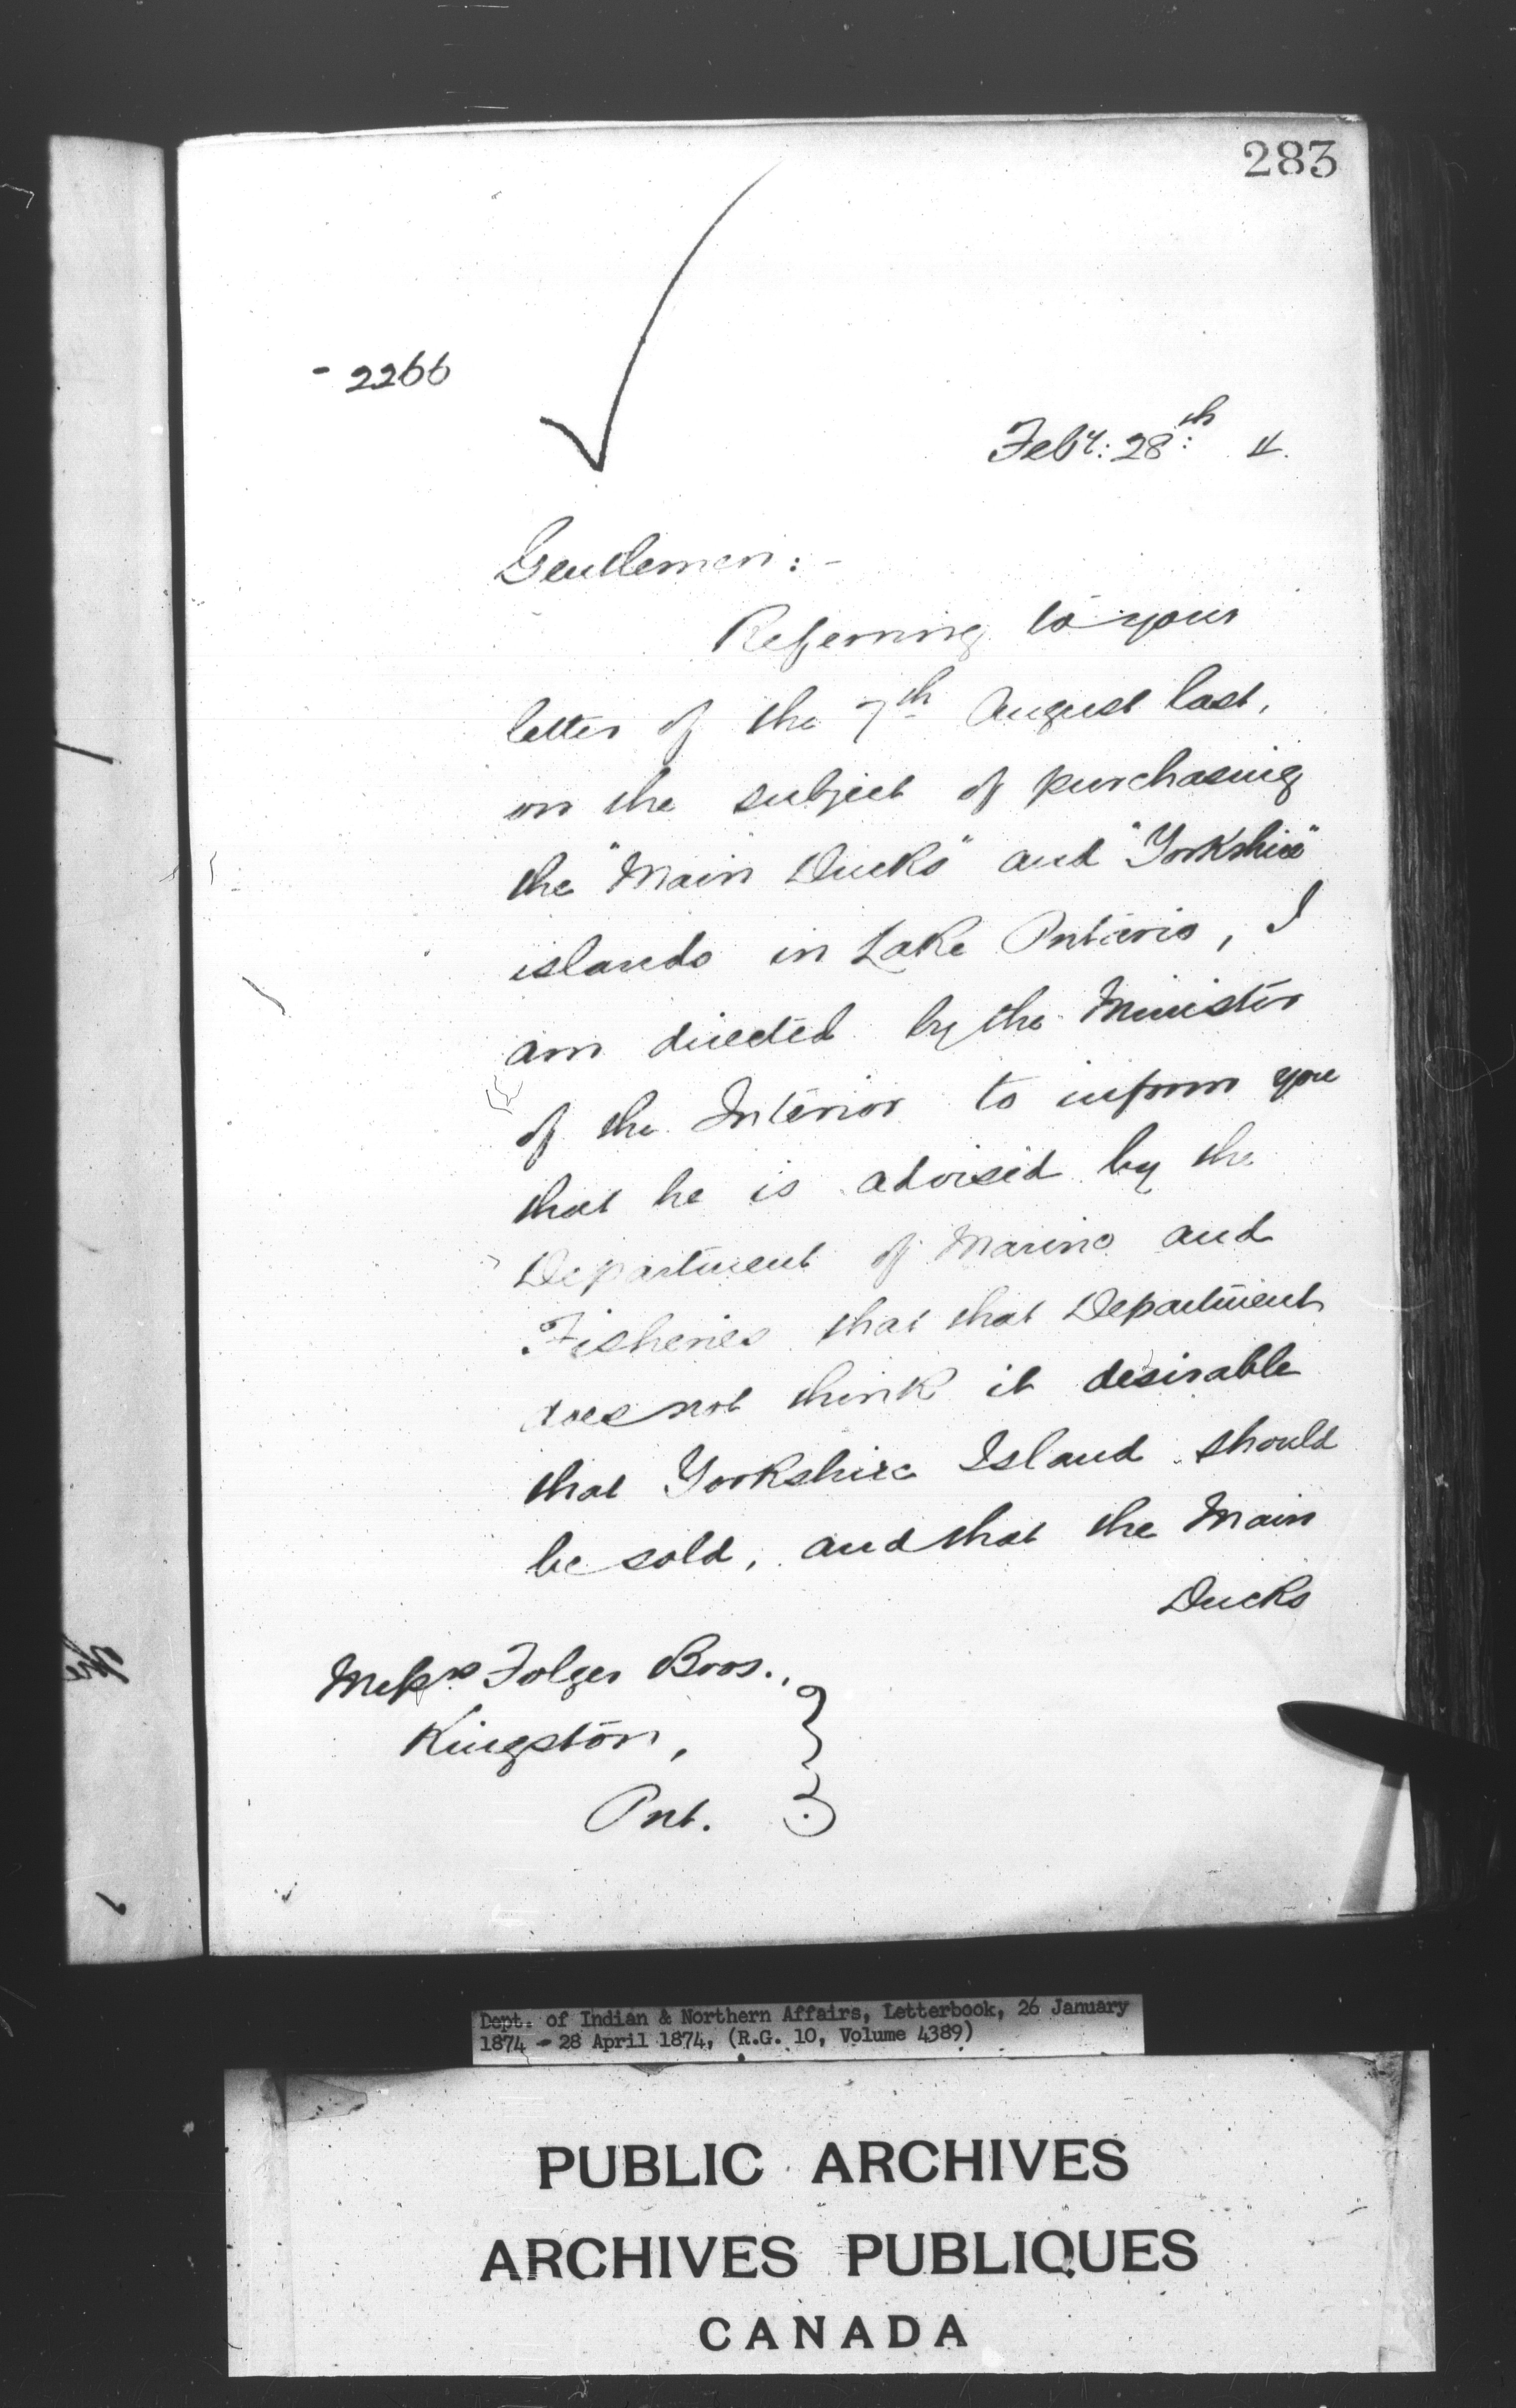 283
- 2266
Feby: 28th: 4.
Gentlemen: -
Referring to your
letter of the 7th August last,
on the subject of purchasing
the "Main Ducks" and "Yorkshire"
islands in Lake Ontario, I
am directed by the Minister
of the Interior to inform you
that he is advised by the
Department of Marine and
Fisheries that that Department
does not think it desirable
that Yorkshire Island should
be sold, and that the Main
Ducks
Messrs Folger Bros.,
Kingston,
Ont.
Dept. of Indian & Northern Affairs, Letterbook, 26 January
1874 - 28 April 1874, (R.G. 10, Volume 4389)
PUBLIC ARCHIVES
ARCHIVES PUBLIQUES
CANADA